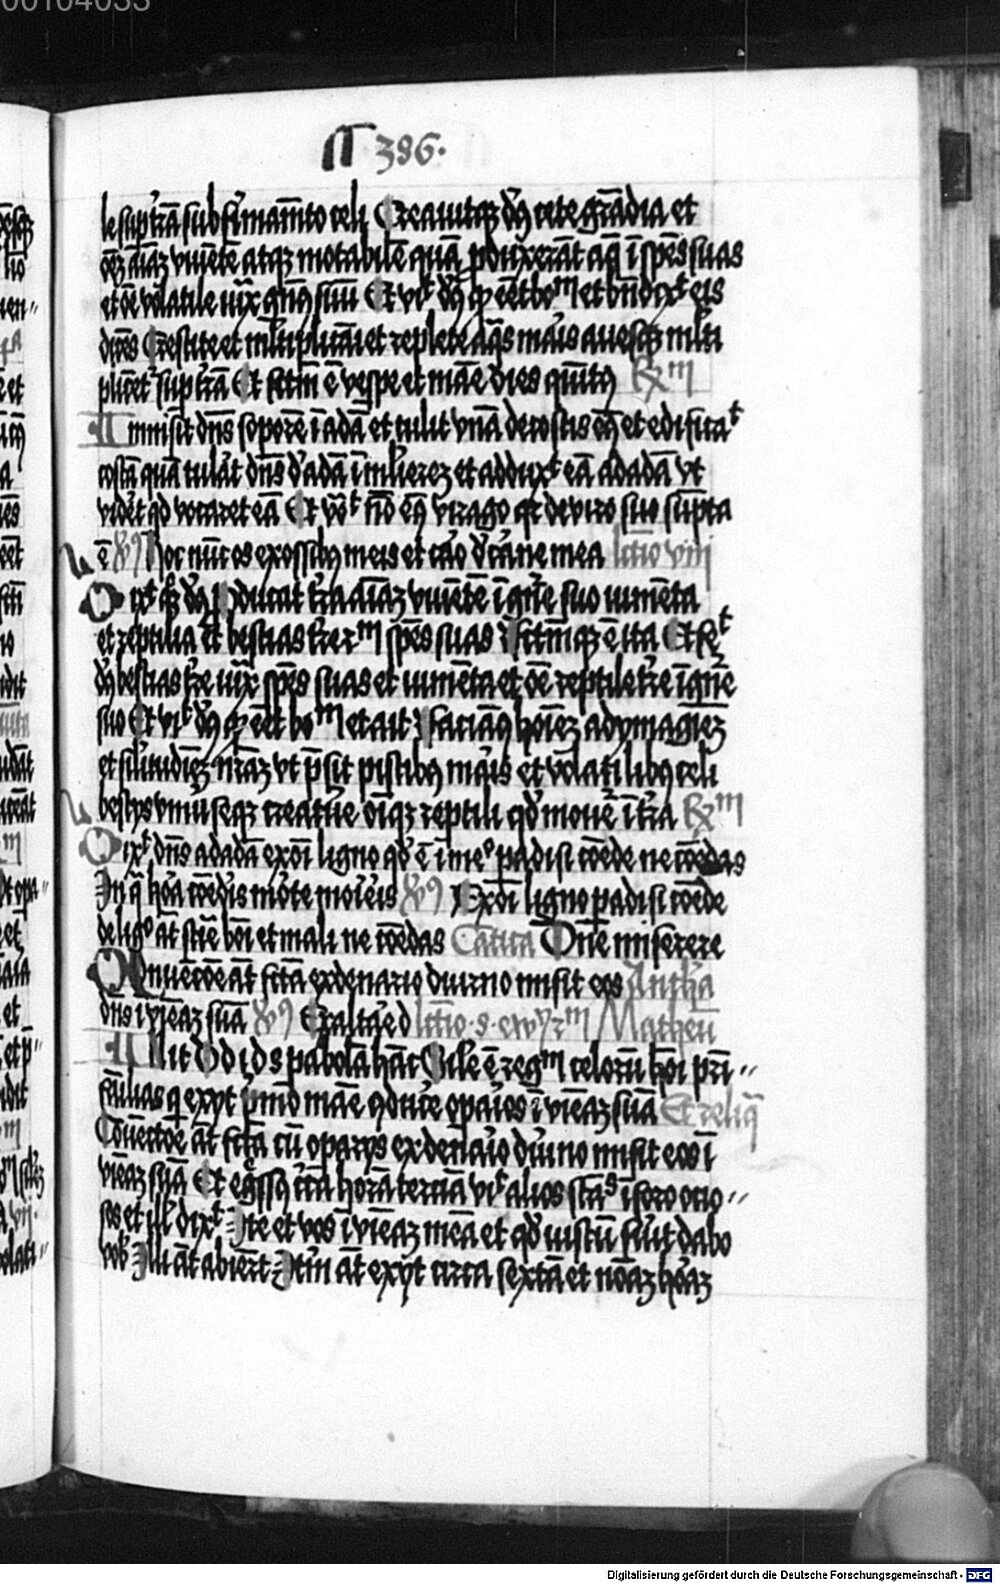 00104033
386.
le sup̄ t̄rā sub firmam̄to celi Creauitqꝫ dꝰ cete grādia et
oēꝫ aīaꝫ viuētē atqꝫ motabilē quā pduxerāt aq̄ ī sp̄es suas
et oē volatile iux̄ gnꝰ suū Et vit dꝰ qꝫ eēt bom et bn̄dixt eis
dicēs Crescite et mltiplicami et replete aq̄s maris auesqꝫ mlti
plicēt sup̄ t̄rā Et fctm ē vespe et mane dies quitꝰ Rm
Inmisit dn̄s soporē ī adā et tulit vnā de costis eiꝰ et edificat
costā quā tulāt dn̄s d' adā ī mlierē et adduxt eā ad adā vt
vidēt qd vocaret eā Et voct nō eiꝰ virago qr de viro suo sūpta
ē Vꝰ Hoc nūc os ex ossibꝰ meis et caro d' carne mea lectio viij
Dixt qꝫ dꝰ Producat t̄ra aīaꝫ viuētē ī gn̄e suo iumēta
et reptilia et bestias terrem sp̄es suas Fctmqꝫ ē ita Et fet
dꝰ bestias t̄re iux̄ sp̄es suas et iumēta et oē reptile t̄re ī gn̄e
suo Et vit dꝰ qꝫ eēt bom et ait Faciamꝰ hoīeꝫ ad ymagīeꝫ
et silitudīeꝫ nr̄aꝫ vt p̄sit piscibꝰ maris et volatilibꝰ celi
bestijs vniuseqꝫ creature oīqꝫ reptili qd mouet ī t̄ra Rm
Dixt dn̄s ad adā ex oī ligno qd ē ī meo padisi cōede ne cōedas
In q̄ hora cōedis morte moieīs Vꝰ Ex oī ligno padisi cōede
de ligo āt sciē boī et mali ne cōedas Cātica Dn̄e miserere
Cōnuētōe āt fctā ex denario diurno misit eos Antha
dn̄s ī vīeaꝫ suā Vꝰ Exaltae d lectio s ew m Matheū
In illit dd ih ds pabolā hāc Sile ē regm celorū hoī pri
familias q exijt pmo mane qducē opaios ī vīeaꝫ suā Et reliq̄
Cōuētōe āt fctā cū oparijs ex denaio diurno misit eos ī
vīeaꝫ suā Et egssꝰ circa horā terciā vit alios stas ī foro ocio
sos et ill' dixt Ite et vos ī vīeaꝫ meā et qd iustū fuit dabo
vob Illi āt abiert Itm āt exijt circa sextā et nonaꝫ horaꝫ
Digitalisierung gefördert durch die Deutsche Forschungsgemeinschaft - DFG